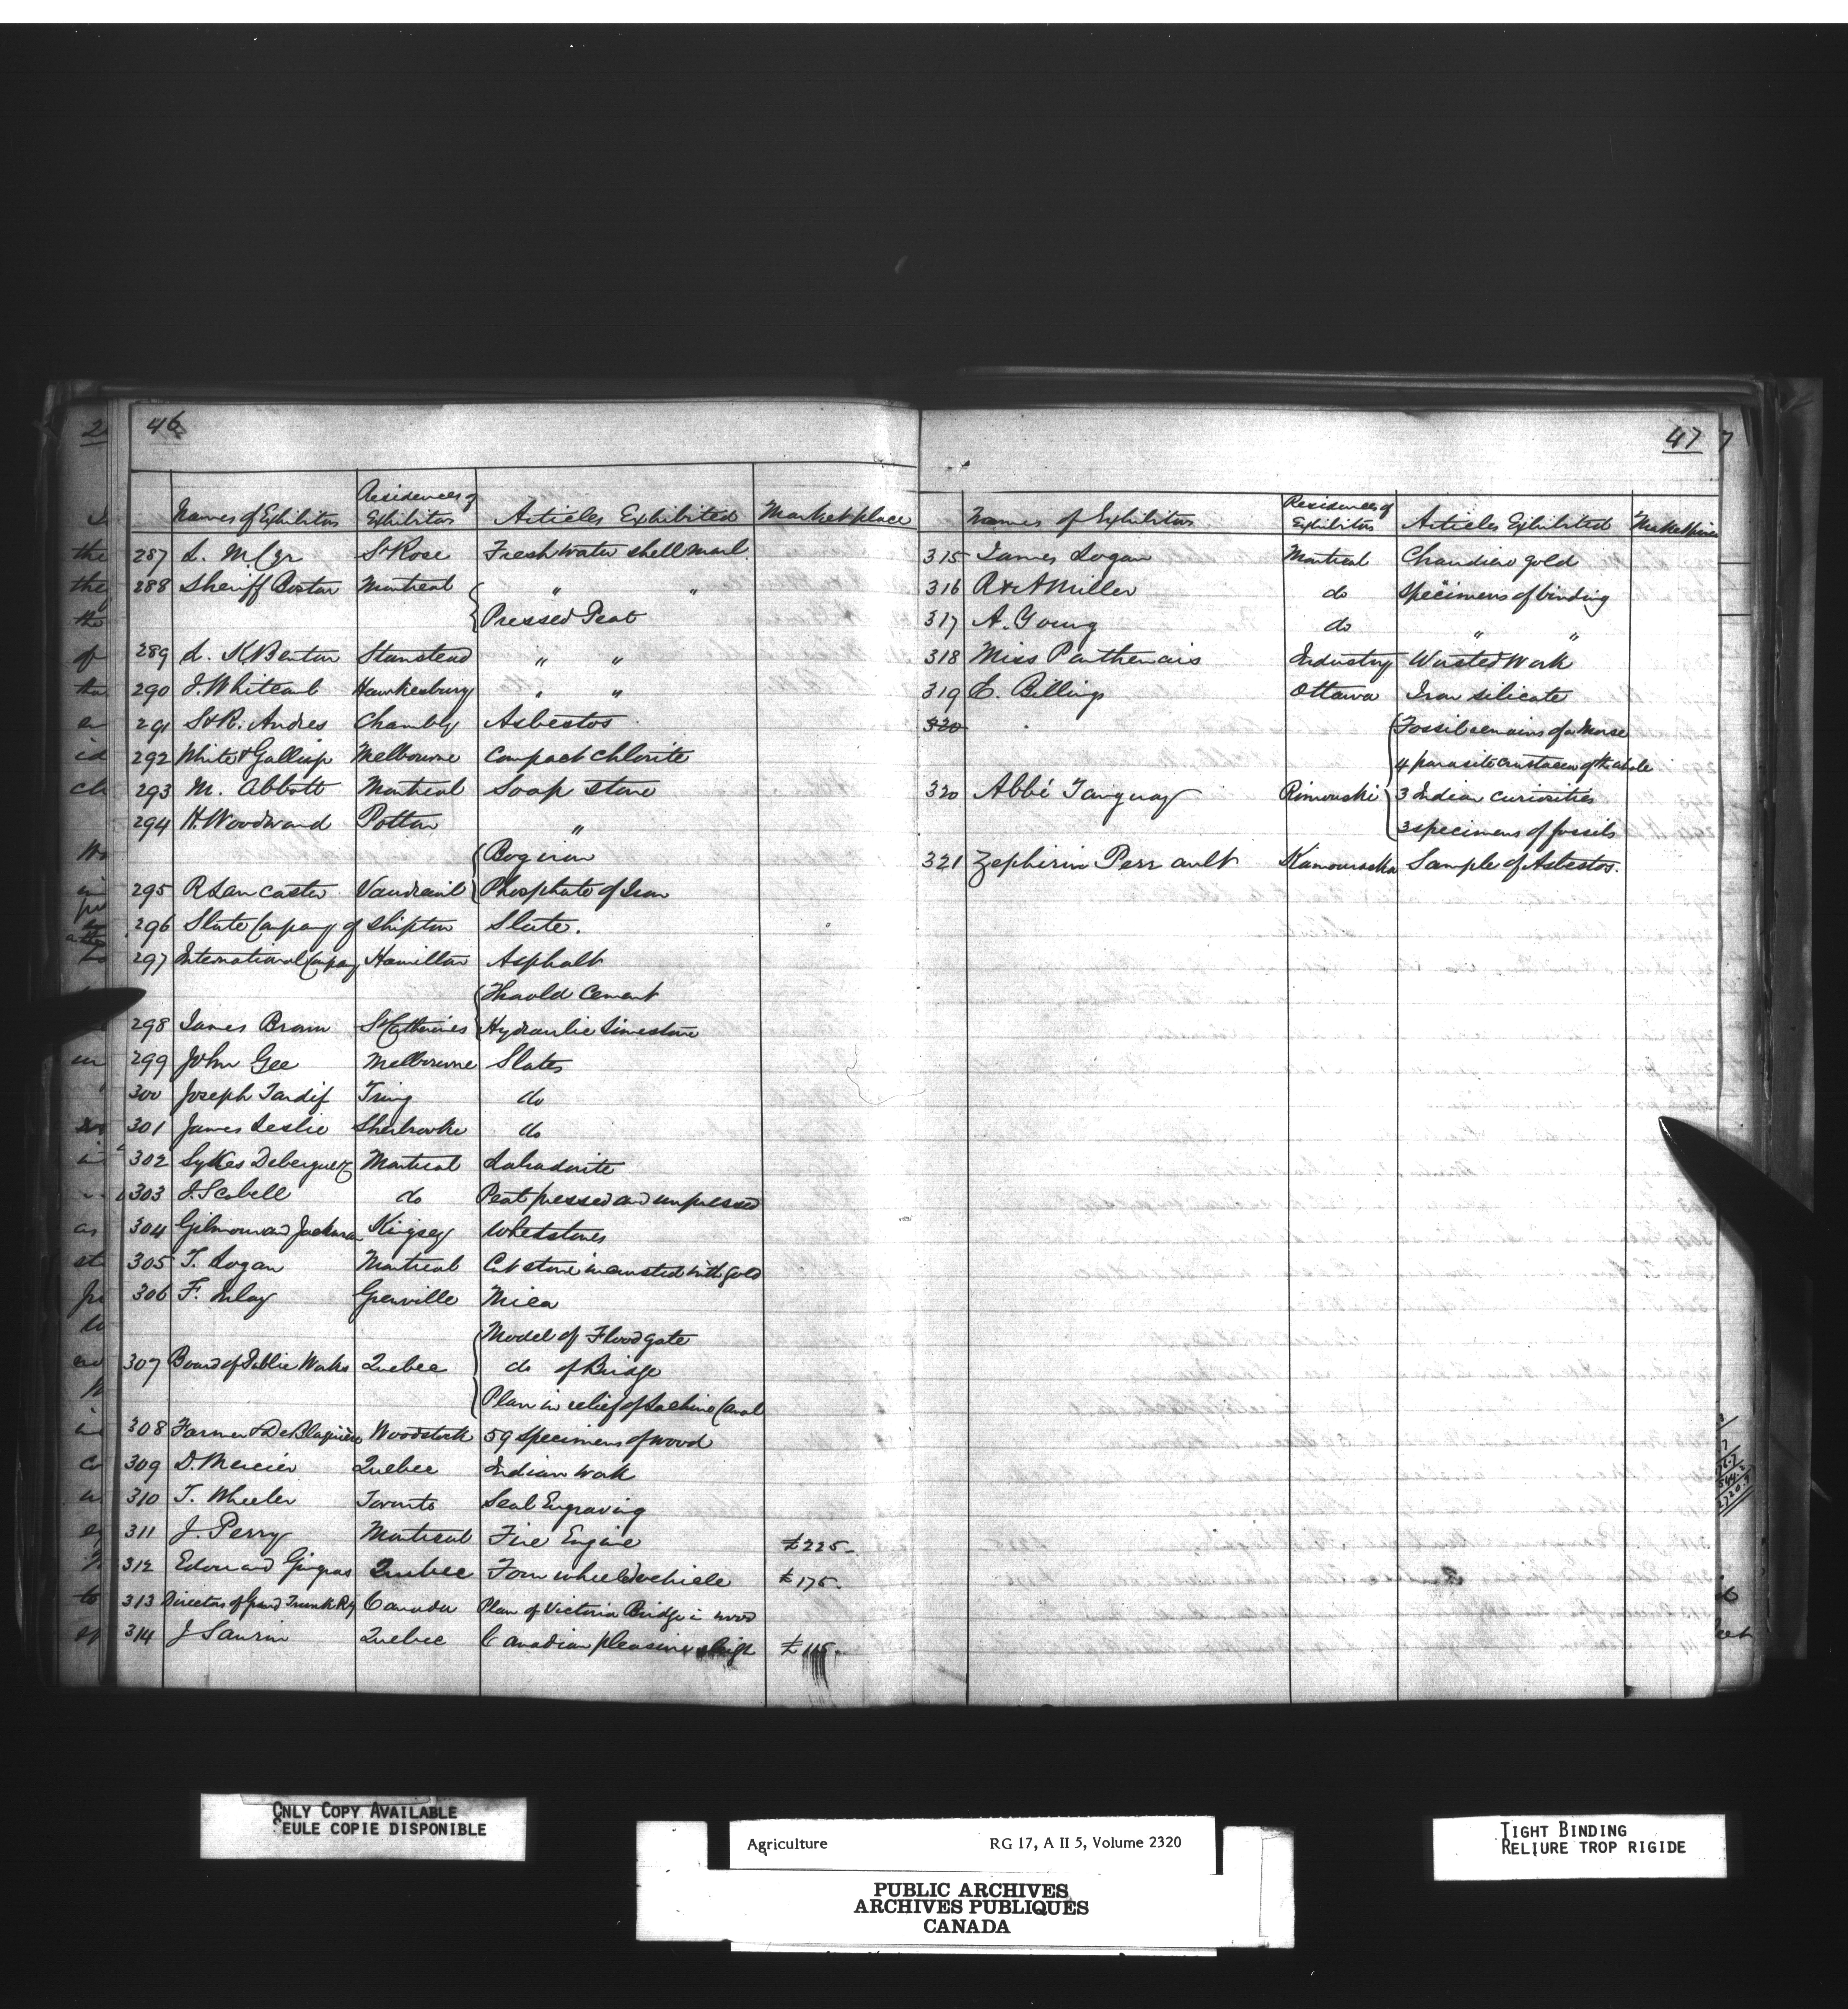 46
Names of Exhibitors Residences of Exhibitors Articles Exhibited Market place
287 St Rose Fresh water shell marl
288 Sheriff Boston Montreal { " "
Pressed Peat
289 L. K Benton Stanstead " "
290 J. Whitcomb Hawkesbury " "
291 S & R. Andres Chambly Asbestos
292 White & Gallup Melbourne Compact Chlorite
293 M. Abbott Montreal Soap stone
294 H. Woodward Potton "
{ Bog iron
295 R Lancaster Vaudreuil Phosphate of Iron
296 Slate Company of Shipton Slate.
297 International Compay Hamilton Asphalt
{ Thorold Cement
298 James Brown St Catherines Hydraulic Limestone
299 John Gee Melbourne Slates
300 Joseph Tardif Tring do
301 James Leslie Sherbrooke do
302 Sykes Deberguez Montreal Labradorite
303 J. Scobell do Peat pressed and unpressed
304 Gilmour and Jackman Kingsey Whetstones
305 T. Logan Montreal Cut stone incrusted with gold
306 F. Inlay Grenville Mica
{ Model of Flood gate
307 Board of Public Works Quebec do of Bridge
Plan in relief of Lachine Canal
308 Farmer & De Blaquière Woodstock 59 Specimens of wood
309 D. Mercier Quebec Indian work
310 T. Wheeler Toronto Seal Engraving
311 J. Perry Montreal Fire Engine £225-
312 Edouard Gingras Quebec Four wheeled vehicle £175.
313 Directors of Grand Trunk Rly Canada Plan of Victoria Bridge in wood
314 J Saurin Quebec Canadian pleasure sleigh £115.
47
Names of Exhibitors Residences of Exhibitors Articles Exhibited
315 James Logan Montreal Chaudiere gold
316 R & A Miller do Specimens of binding
317 A. Young do " "
318 Miss Parthenais Industry Worsted Work
319 E. Billings Ottawa Iron silicate
320 { Fossil remains of a Morse
4 parasite crustacea of the whale
320 Abbé Tanguay Rimouski 3 Indian curiosities
3 specimens of fossils
321 Zephirin Perrault Kamouraska Sample of Asbestos.
ONLY COPY AVAILABLE
SEULE COPIE DISPONIBLE
Agriculture RG 17, A II 5, Volume 2320
PUBLIC ARCHIVES
ARCHIVES PUBLIQUES
CANADA
TIGHT BINDING
RELIURE TROP RIGIDE